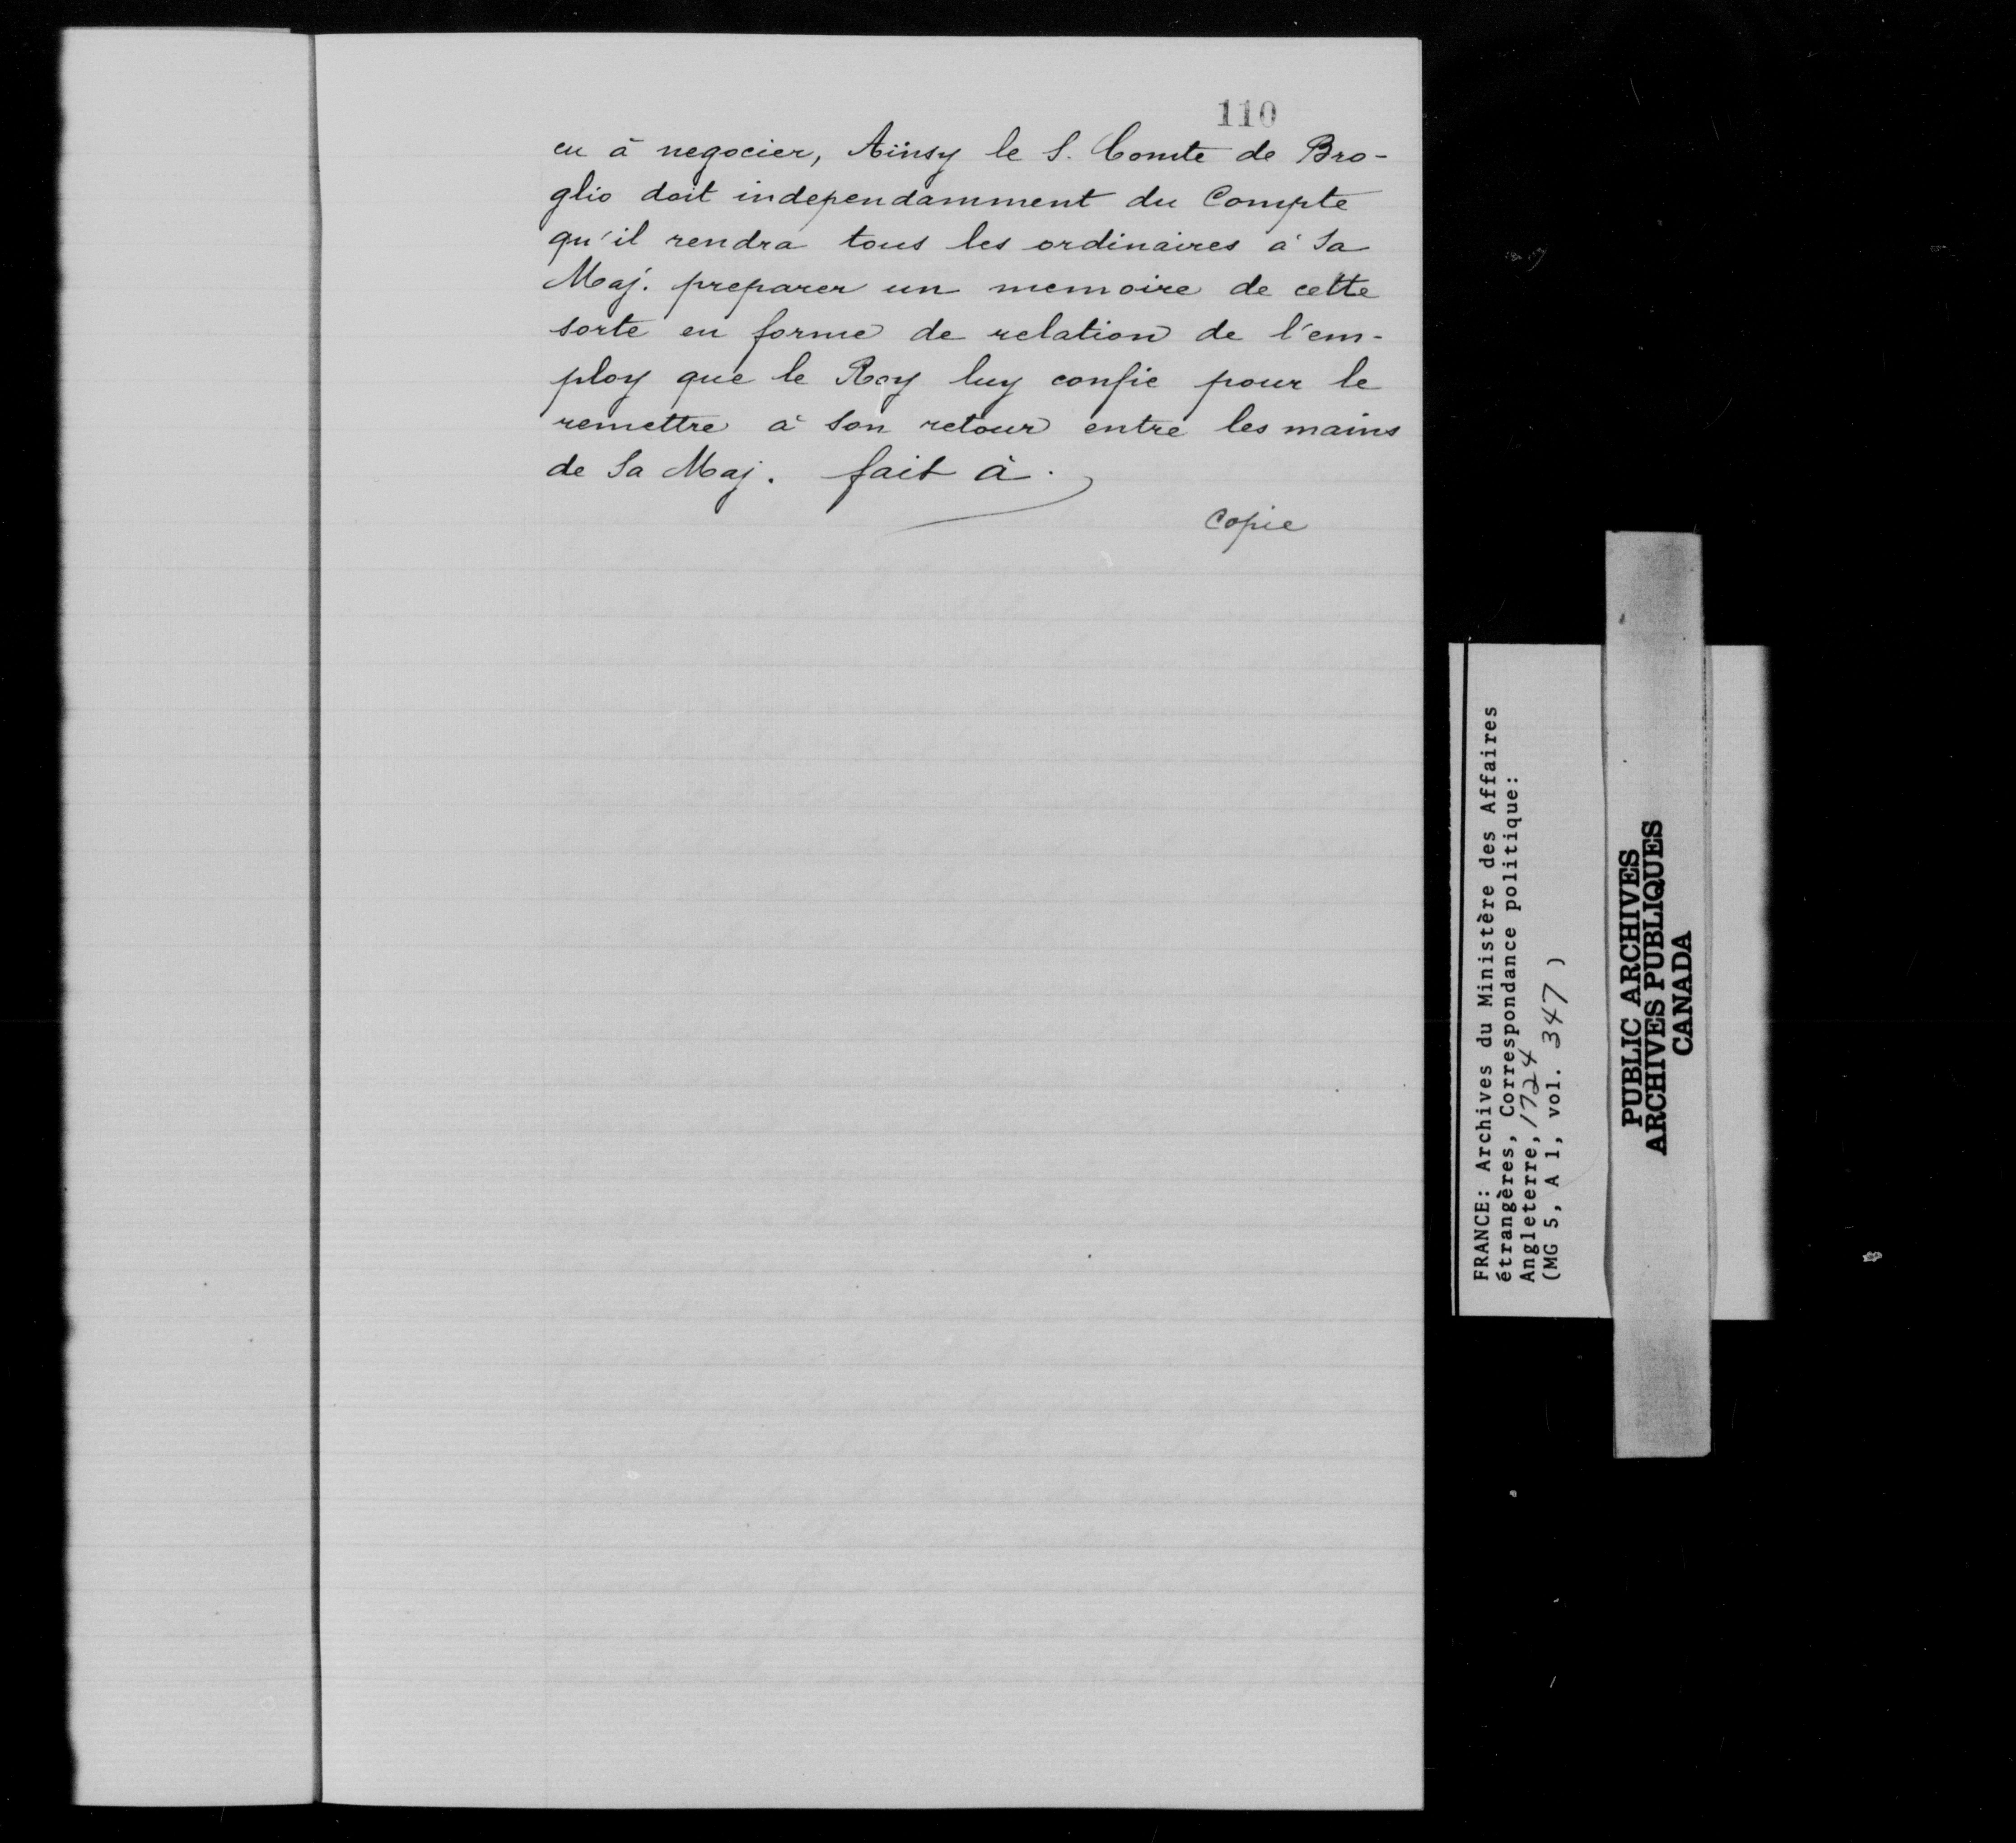 110
eu à negocier, Ainsy le S. Comte de Bro-
glio doit independamment du Compte
qu'il rendra tous les ordinaires à Sa
Maj. preparer un memoire de cette
sorte en forme de relation de l'em-
ploy que le Roy luy confie pour le
remettre à son retour entre les mains
de Sa Maj. fait à.
Copie
FRANCE: Archives du Ministère des Affaires
étrangères, Correspondance politique:
Angleterre, 1724
(MG 5, A 1, vol. 347 )
PUBLIC ARCHIVES
ARCHIVES PUBLIQUES
CANADA